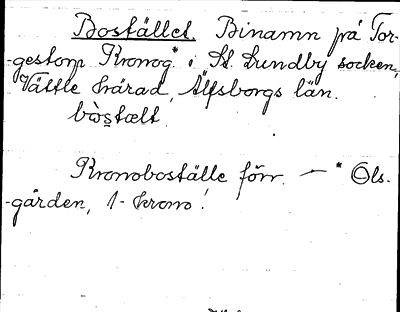 Bostället. Binamn på Tor-
-gestorp Kronog* i St. Lundby socken,
Vättle härad, Älfsborgs län.
bòstælt.
Kronoboställe förr. — * Ols-
-gården, 1- krono!